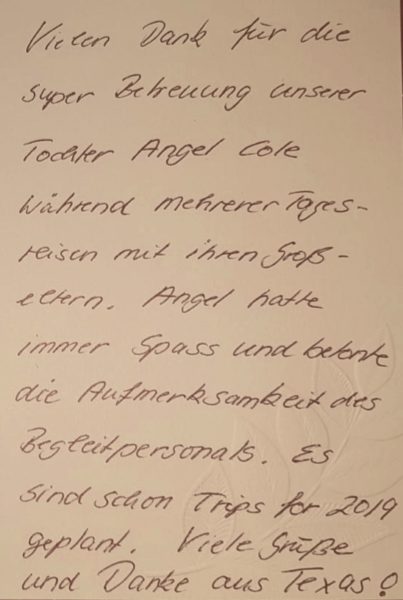 Vielen Dank für die
super Betreuung unserer
Tochter Angel Cole
während mehrerer Tages-
reisen mit ihren Groß-
eltern. Angel hatte
immer Spass und betonte
die Aufmerksamkeit des
Begleitpersonals. Es
sind schon Trips for 2019
geplant. Viele Grüße
und Danke aus Texas!